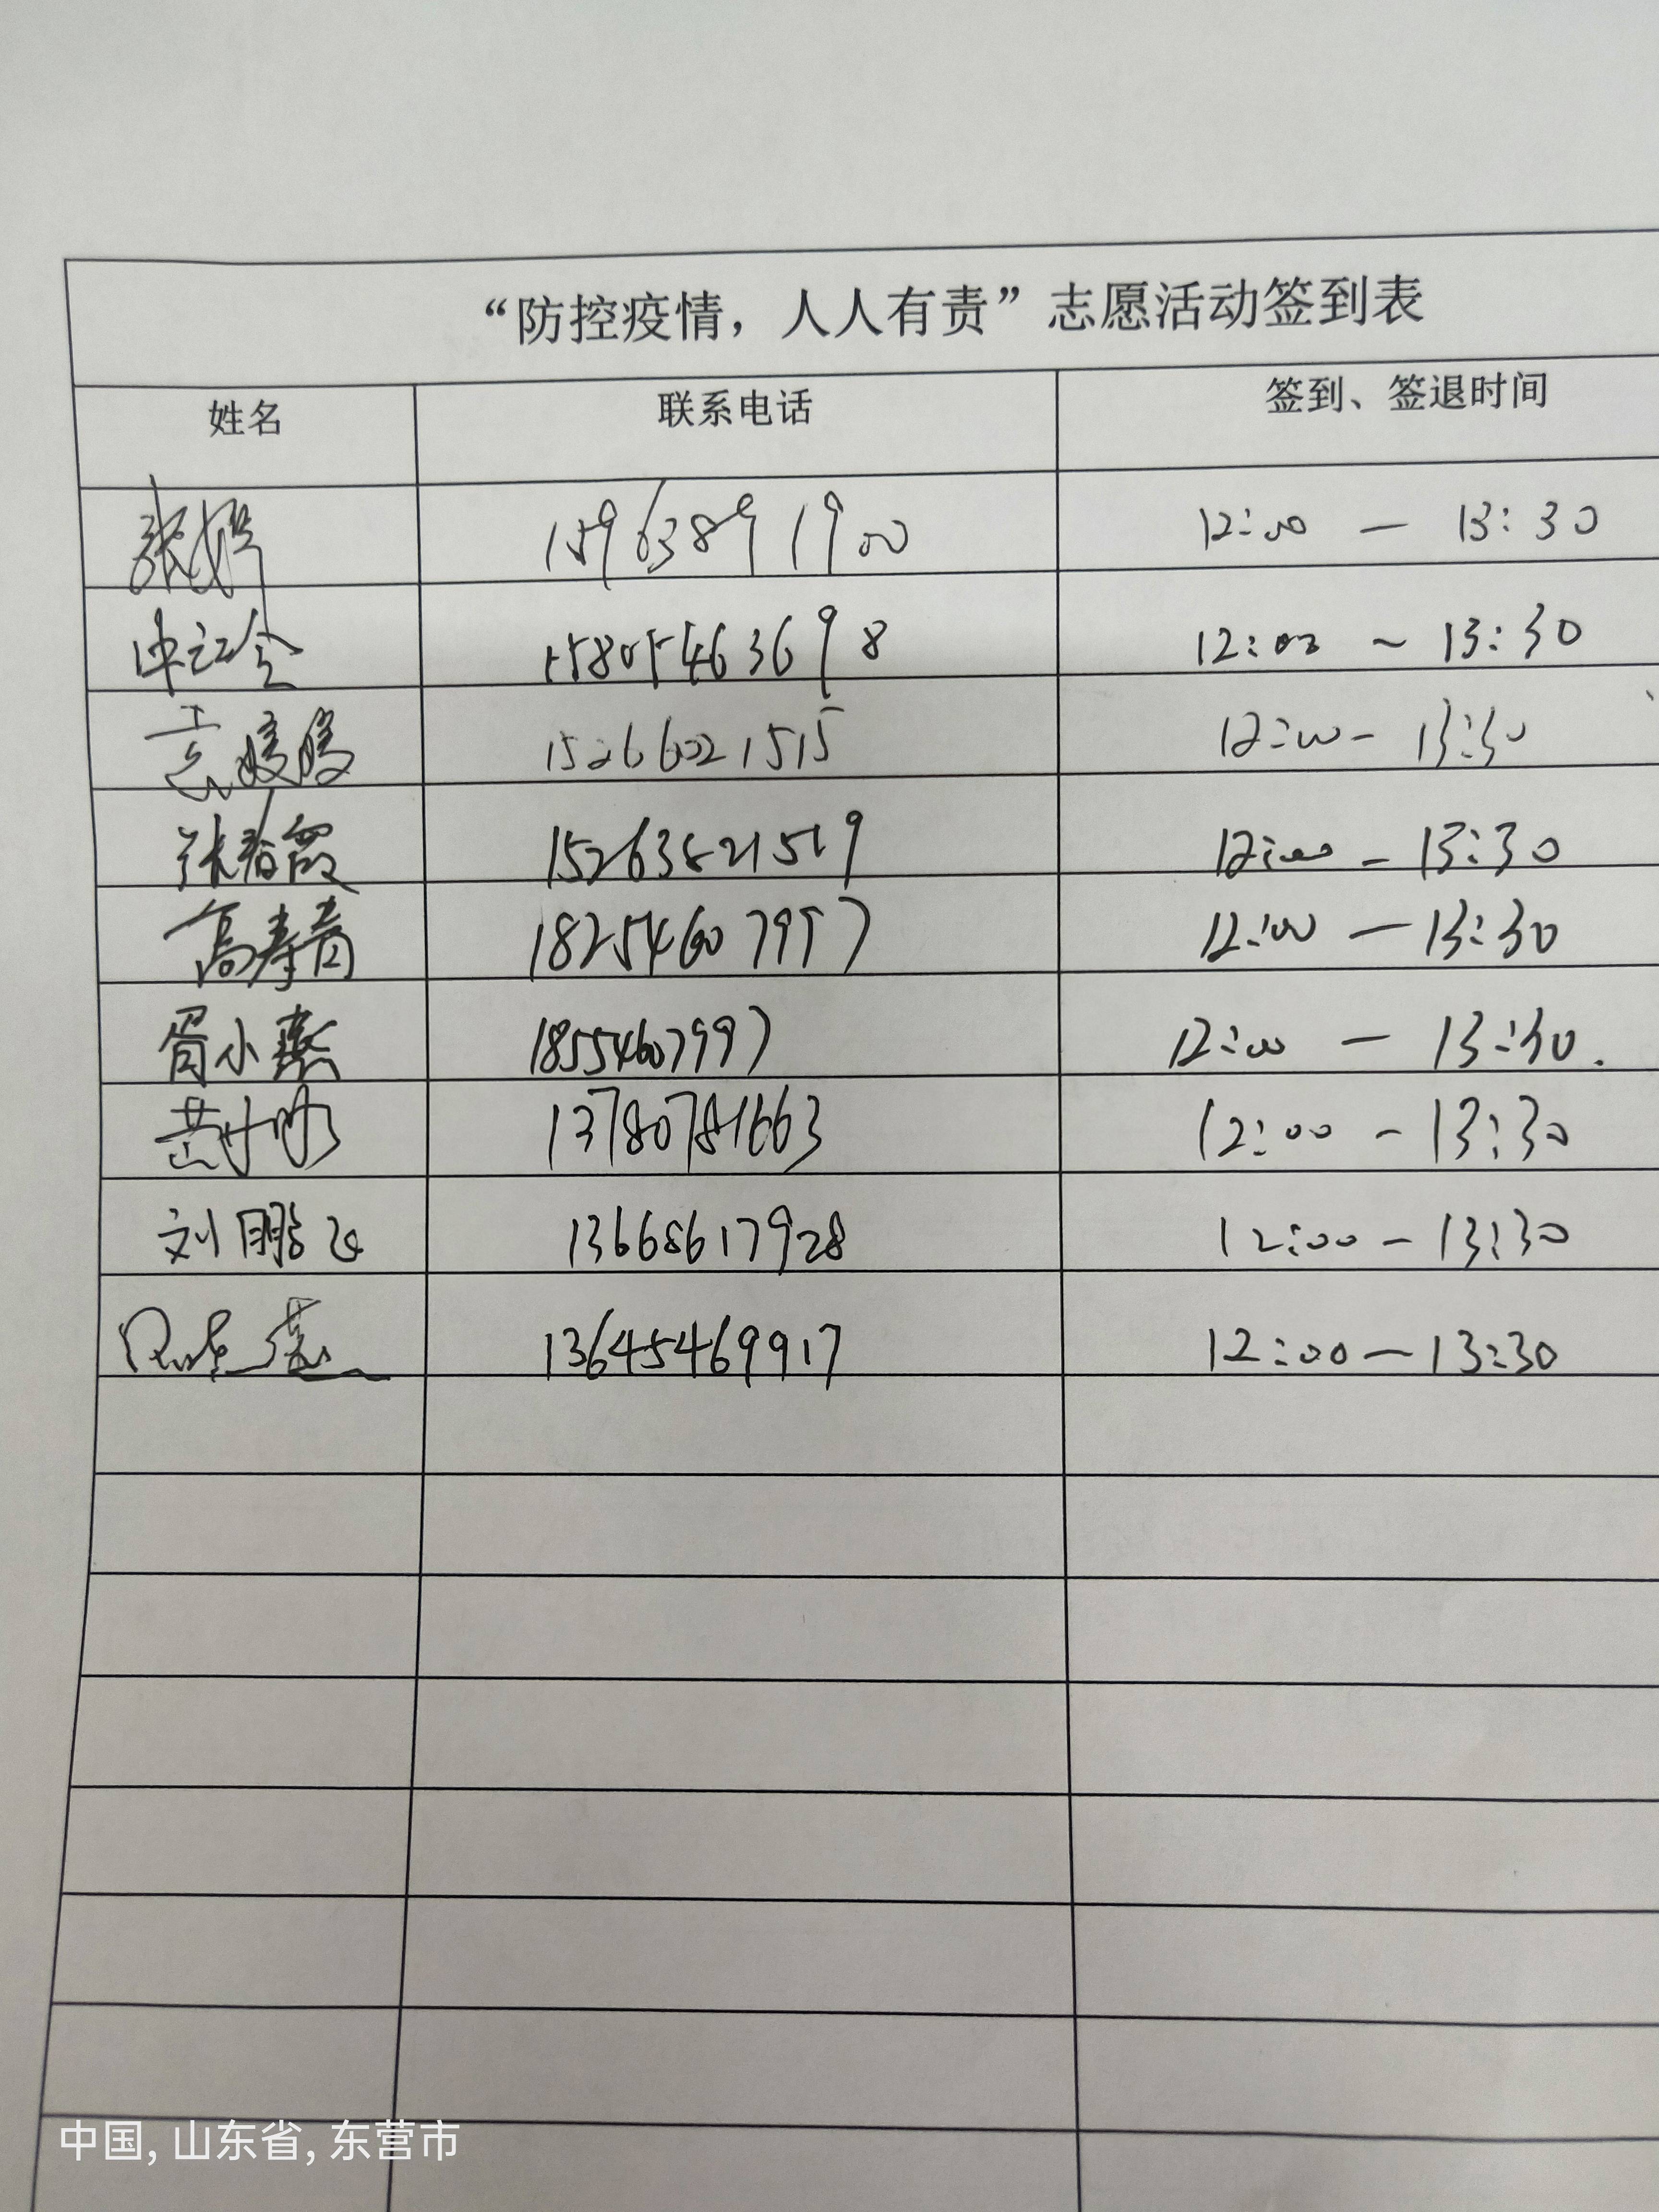 “防控疫情，人人有责”志愿活动签到表
姓名 联系电话 签到、签退时间
张婷 15963891900 12:00 — 13:30
15805463698 12:00 ~ 13:30
袁媛媛 15266021515 12:00 - 13:30
张春霞 15263821519 12:00 - 13:30
高寿青 18254607997 12:00 — 13:30
胥小燕 18554607997 12:00 — 13:30.
13780781663 12:00 - 13:30
刘鹏飞 13668617928 12:00 - 13:30
13645469917 12:00 — 13:30
中国, 山东省, 东营市